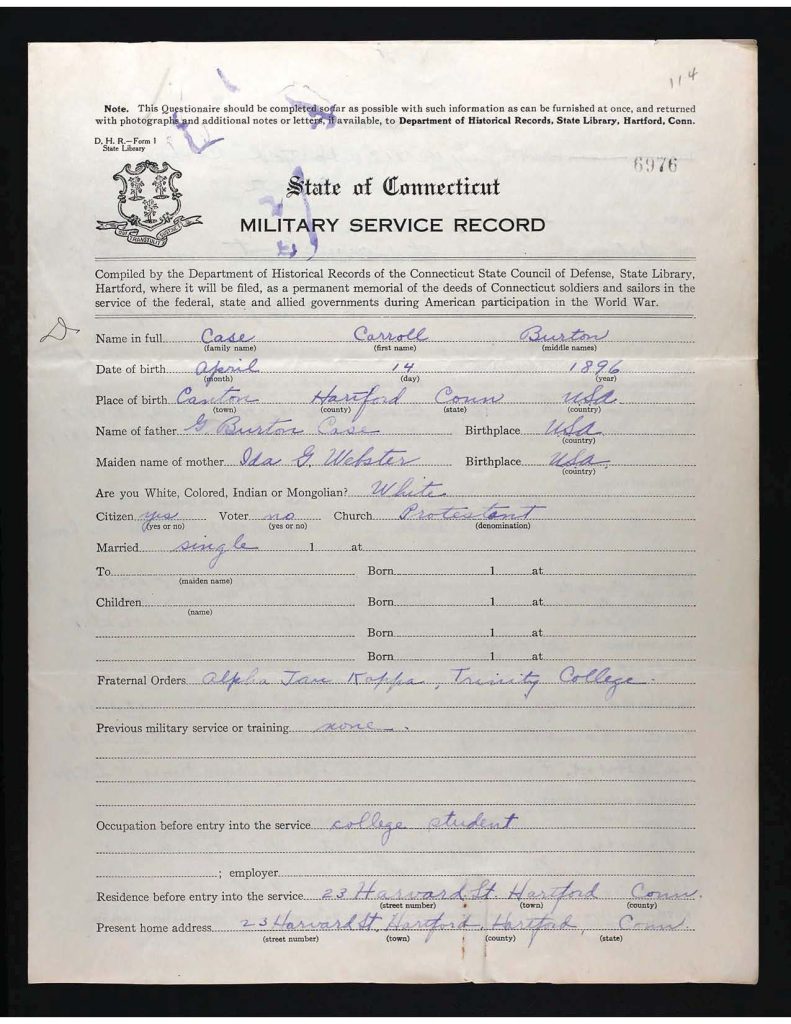 114
Note. This Questionaire should be completed so far as possible with such information as can be furnished at once, and returned
with photographs and additional notes or letters, if available, to Department of Historical Records, State Library, Hartford, Conn.
D. H. R.—Form 1
State Library
6976
State of Connecticut
MILITARY SERVICE RECORD
Compiled by the Department of Historical Records of the Connecticut State Council of Defense, State Library,
Hartford, where it will be filed, as a permanent memorial of the deeds of Connecticut soldiers and sailors in the
service of the federal, state and allied governments during American participation in the World War.
D
Name in full Case Carroll Burton
(family name) (first name) (middle names)
Date of birth April 14 1896
(month) (day) (year)
Place of birth Canton Hartford Conn USA
(town) (county) (state) (country)
Name of father G. Burton Case Birthplace USA
(country)
Maiden name of mother Ida G. Webster Birthplace USA
(country)
Are you White, Colored, Indian or Mongolian? White
Citizen yes Voter no Church Protestant
(yes or no) (yes or no) (denomination)
Married single 1 at
To Born 1 at
(maiden name)
Children Born 1 at
(name)
Born 1 at
Born 1 at
Fraternal Orders Alpha Tau Kappa, Trinity College.
Previous military service or training none.
Occupation before entry into the service college student
; employer
Residence before entry into the service 23 Harvard St. Hartford Conn.
(street number) (town) (county)
Present home address 23 Harvard St, Hartford, Hartford, Conn.
(street number) (town) (county) (state)